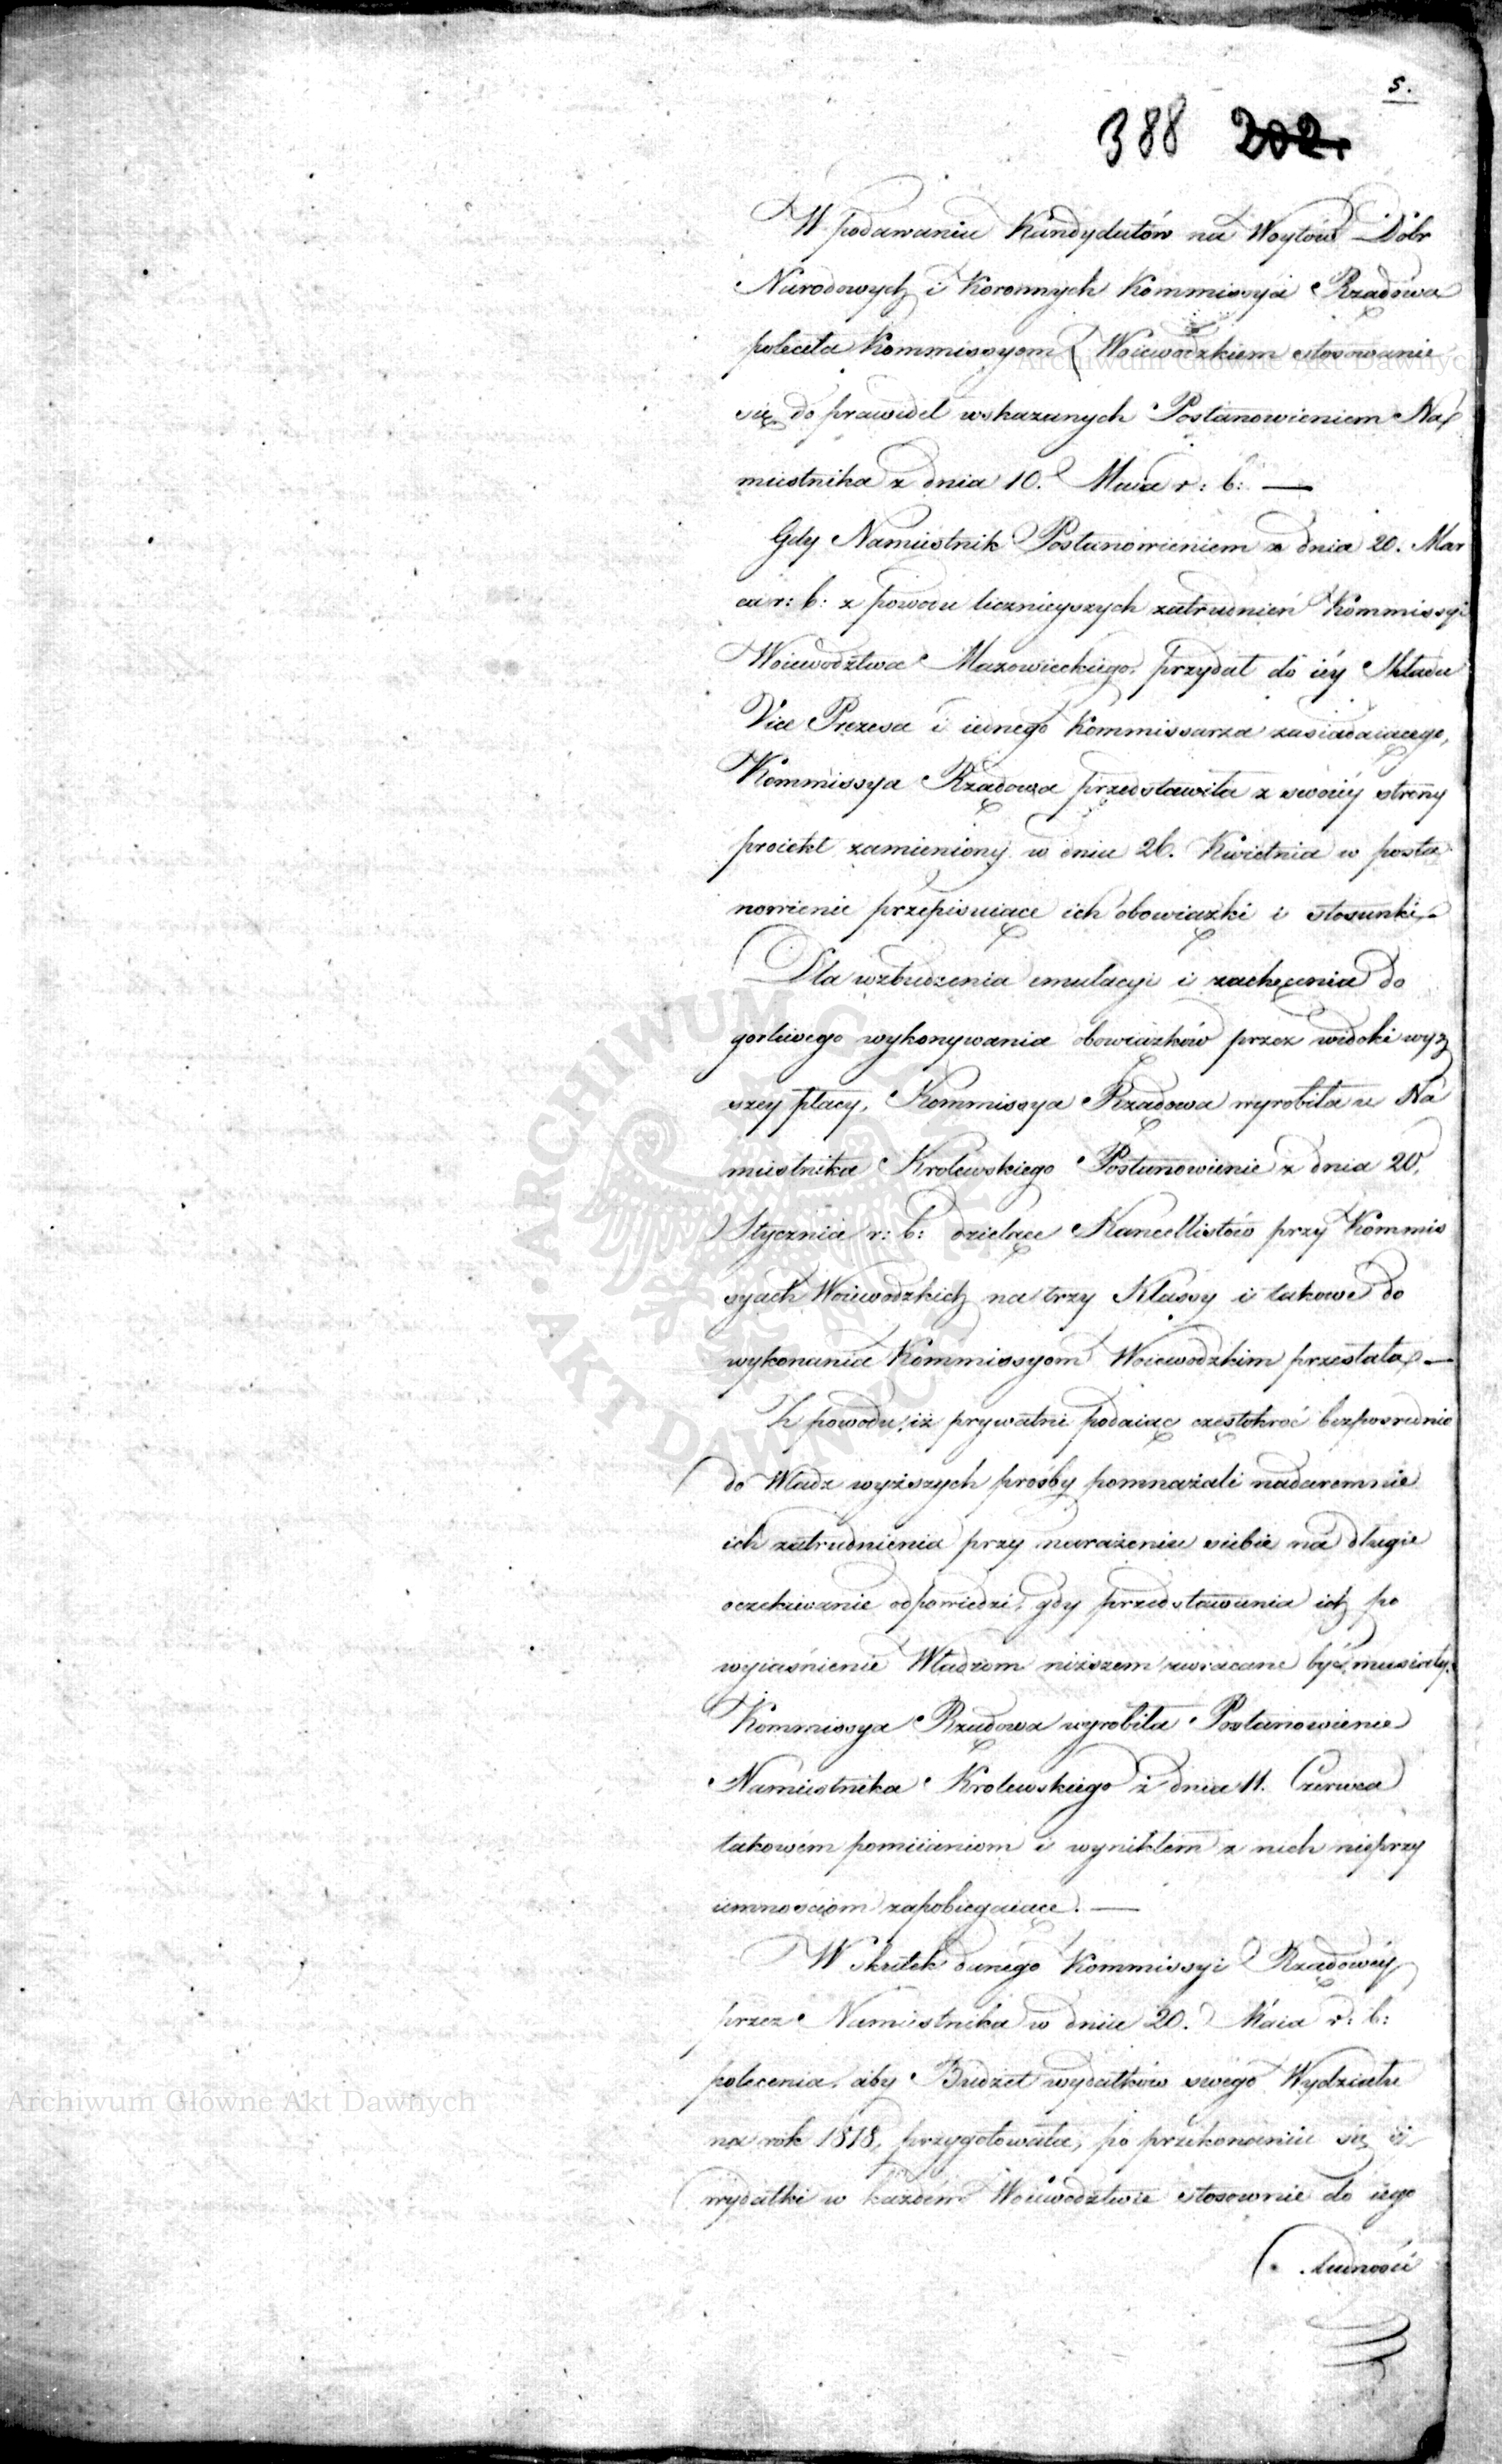 5.
388 202.
W podawaniu Kandydatów na Woytów Dobr
Narodowych i Koronnych Kommissya Rządowa
poleciła Kommissyom Woiewodzkiem stosowanie
się do prawideł wskazanych Postanowieniem Na
miestnika z dnia 10. Maia r: b: —
Gdy Namiestnik Postanowieniem z dnia 20. Mar
ca r: b: z powodu licznieyszych zatrudnień Kommissyi
Woiewodztwa Mazowieckiego, przydał do iéy Składu
Vice Prezesa i iednego Kommissarza zasiadaiącego,
Kommissya Rządowa przedstawiła z swoiéy strony
proiekt zamieniony w dniu 26. Kwietnia w posta
nowienie przepisuiące ich obowiązki i stosunki. —
Dla wzbudzenia emulacyi i zachęcenia do
gorliwego wykonywania obowiązków przez widoki wyż
szey płacy, Kommissya Rządowa wyrobiła u Na
miestnika Krolewskiego Postanowienie z dnia 20.
Stycznia r: b: dzielące Kancellistów przy Kommis
syach Woiewodzkich na trzy Klassy i takowe do
wykonania Kommissyom Woiewodzkim przesłała. —
Z powodu, iż prywatni podaiąc częstokroć bezposrednio
do Władz wyższych prośby pomnażali nadaremnie
ich zatrudnienia przy narażeniu siebie na długie
oczekiwanie odpowiedzi, gdy przedstawienia ich po
wyiaśnienie Władzom niższem zwracane być musiały,
Kommissya Rządowa wyrobiła Postanowienie
Namiestnika Krolewskiego z dnia 11. Czerwca
takowém pomiianiom i wynikłem z nich nieprzy
iemnosciom zapobiegaiące. —
W skutek danego Kommissyi Rządowéy
przez Namiestnika w dniu 20. Maia r: b:
polecenia, aby Budżet wydatków swego Wydziału
na rok 1818, przygotowała, po przekonaniu się iż
wydatki w każdém Woiewodztwie stosownie do iego
ludności
Archiwum Główne Akt Dawnych
Archiwum Główne Akt Dawnych
ARCHIWUM GŁÓWNE
AKT DAWNYCH